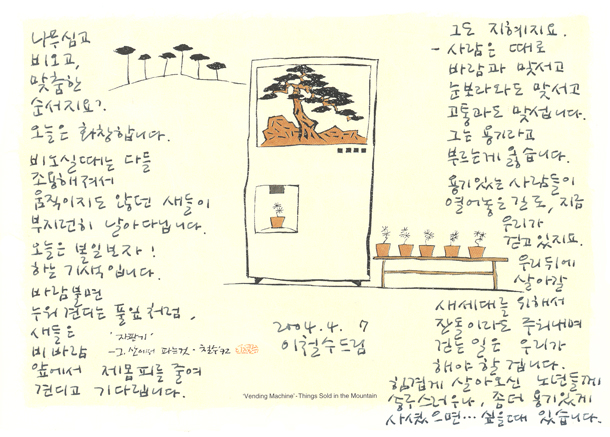 나무심고
비오고,
맞춤한
순서지요?
오늘은 화창합니다.
비오실때는 다들
조용해져서
움직이지도 않던 새들이
부지런히 날아다닙니다.
오늘은 볼일보자!
하는 기색입니다.
바람불면
누워 견디는 풀잎처럼,
새들은
비바람
앞에서 제몸피를 줄여
견디고 기다립니다.
'자판기'
-그, 산에서 파는것·철수'92
2004. 4. 7
이철수드림
'Vending Machine' - Things Sold in the Mountain
그도 지혜지요.
- 사람은 때로
바람과 맞서고
눈보라와도 맞서고
고통과도 맞섭니다.
그는 용기라고
부르는게 옳습니다.
용기있는 사람들이
열어놓은 길로, 지금
우리가
걷고있지요.
우리뒤에
살아갈
새세대를 위해서
잔돌이라도 주워내며
걷는 일은 우리가
해야 할 겁니다.
힘겹게 살아오신 노년들께
송구스러우나, 좀더 용기있게
사셨으면… 싶을때 있습니다.